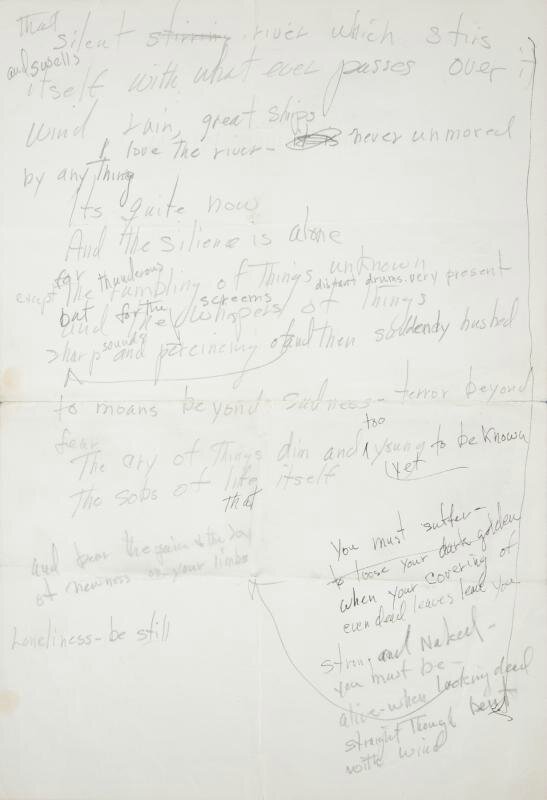 That
silent stirring river which stirs
and swells
itself with what ever passes over it
wind rain, great ships
I love the river - never unmoved
by any thing
Its quite now
And the silience is alone
except for thunderous
the rumbling of things unknown
distant drums very present
but for the screems
and the whispers of things
sharp sounds and percincing and then suddendy hushed
to moans beyond sadness - terror beyond
fear.
The cry of things dim and too young to be known
yet
The sobs of life itself
that
You must suffer -
to loose your dark golden
when your covering of
even dead leaves leave you
and bear the pain & the joy
of newness on your limbs
Loneliness - be still
strong and Naked -
you must be -
alive - when looking dead
straight though bent
with wind